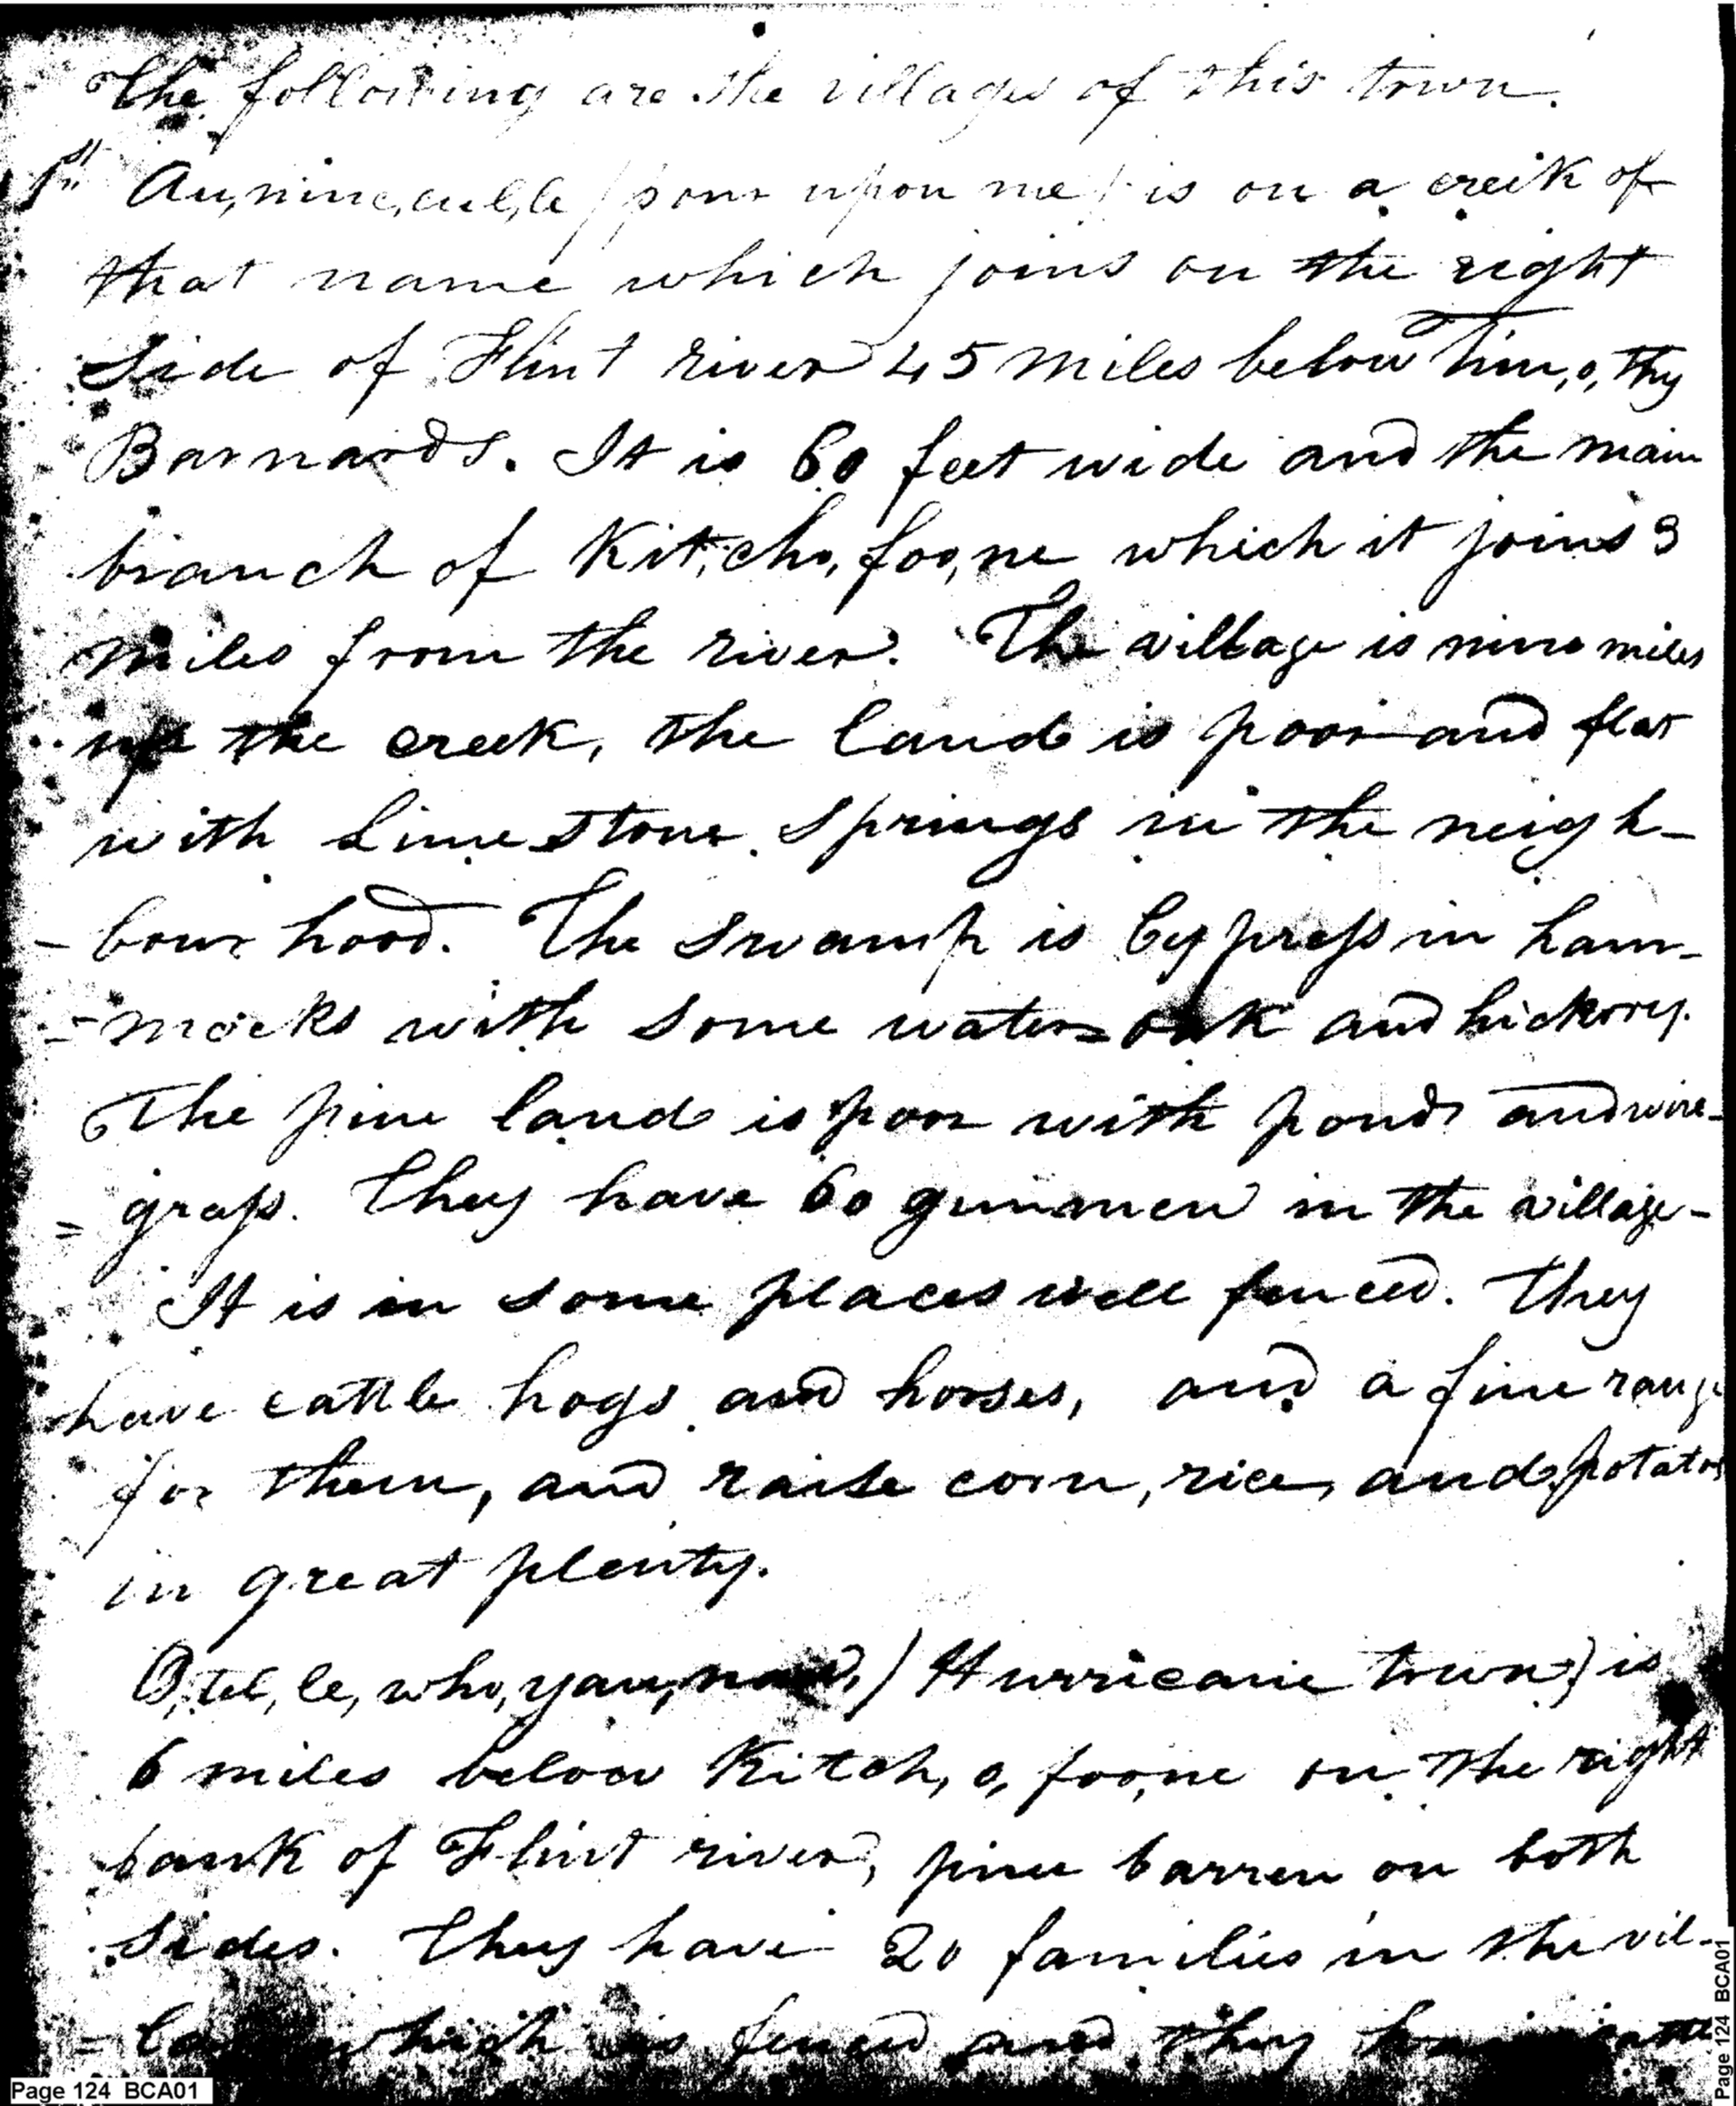 The following are the villages of this town.
1st Au,nine,cul,le (pour upon me) is on a creik of
that name which joins on the right
side of Flint river 45 miles below Tim,o,thy
Barnards. It is 60 feet wide and the main
branch of Kit,cho,foo,ne which it joins 3
miles from the river. The village is nine miles
up the creek, the land is poor and flat
with limestone springs in the neigh-
-bour hood. The swamp is Cypress in ham-
-mocks with some water=oak and hickory.
The pine land is poor with ponds and wire-
=grass. They have 60 gunmen in the village-
It is in some places well fenced. They
have cattle hogs and horses, and a fine range
for them, and raise corn, rice, and potatoes
in great plenty.
O,tel,le,who,yau,nau,) Hurricane town) is
6 miles below Kitch,o,foo,ne on the right
bank of Flint river, pine barren on both
sides. They have 20 families in the vil-
which is fenced and they have
Page 124 BCA01
Page 124 BCA01